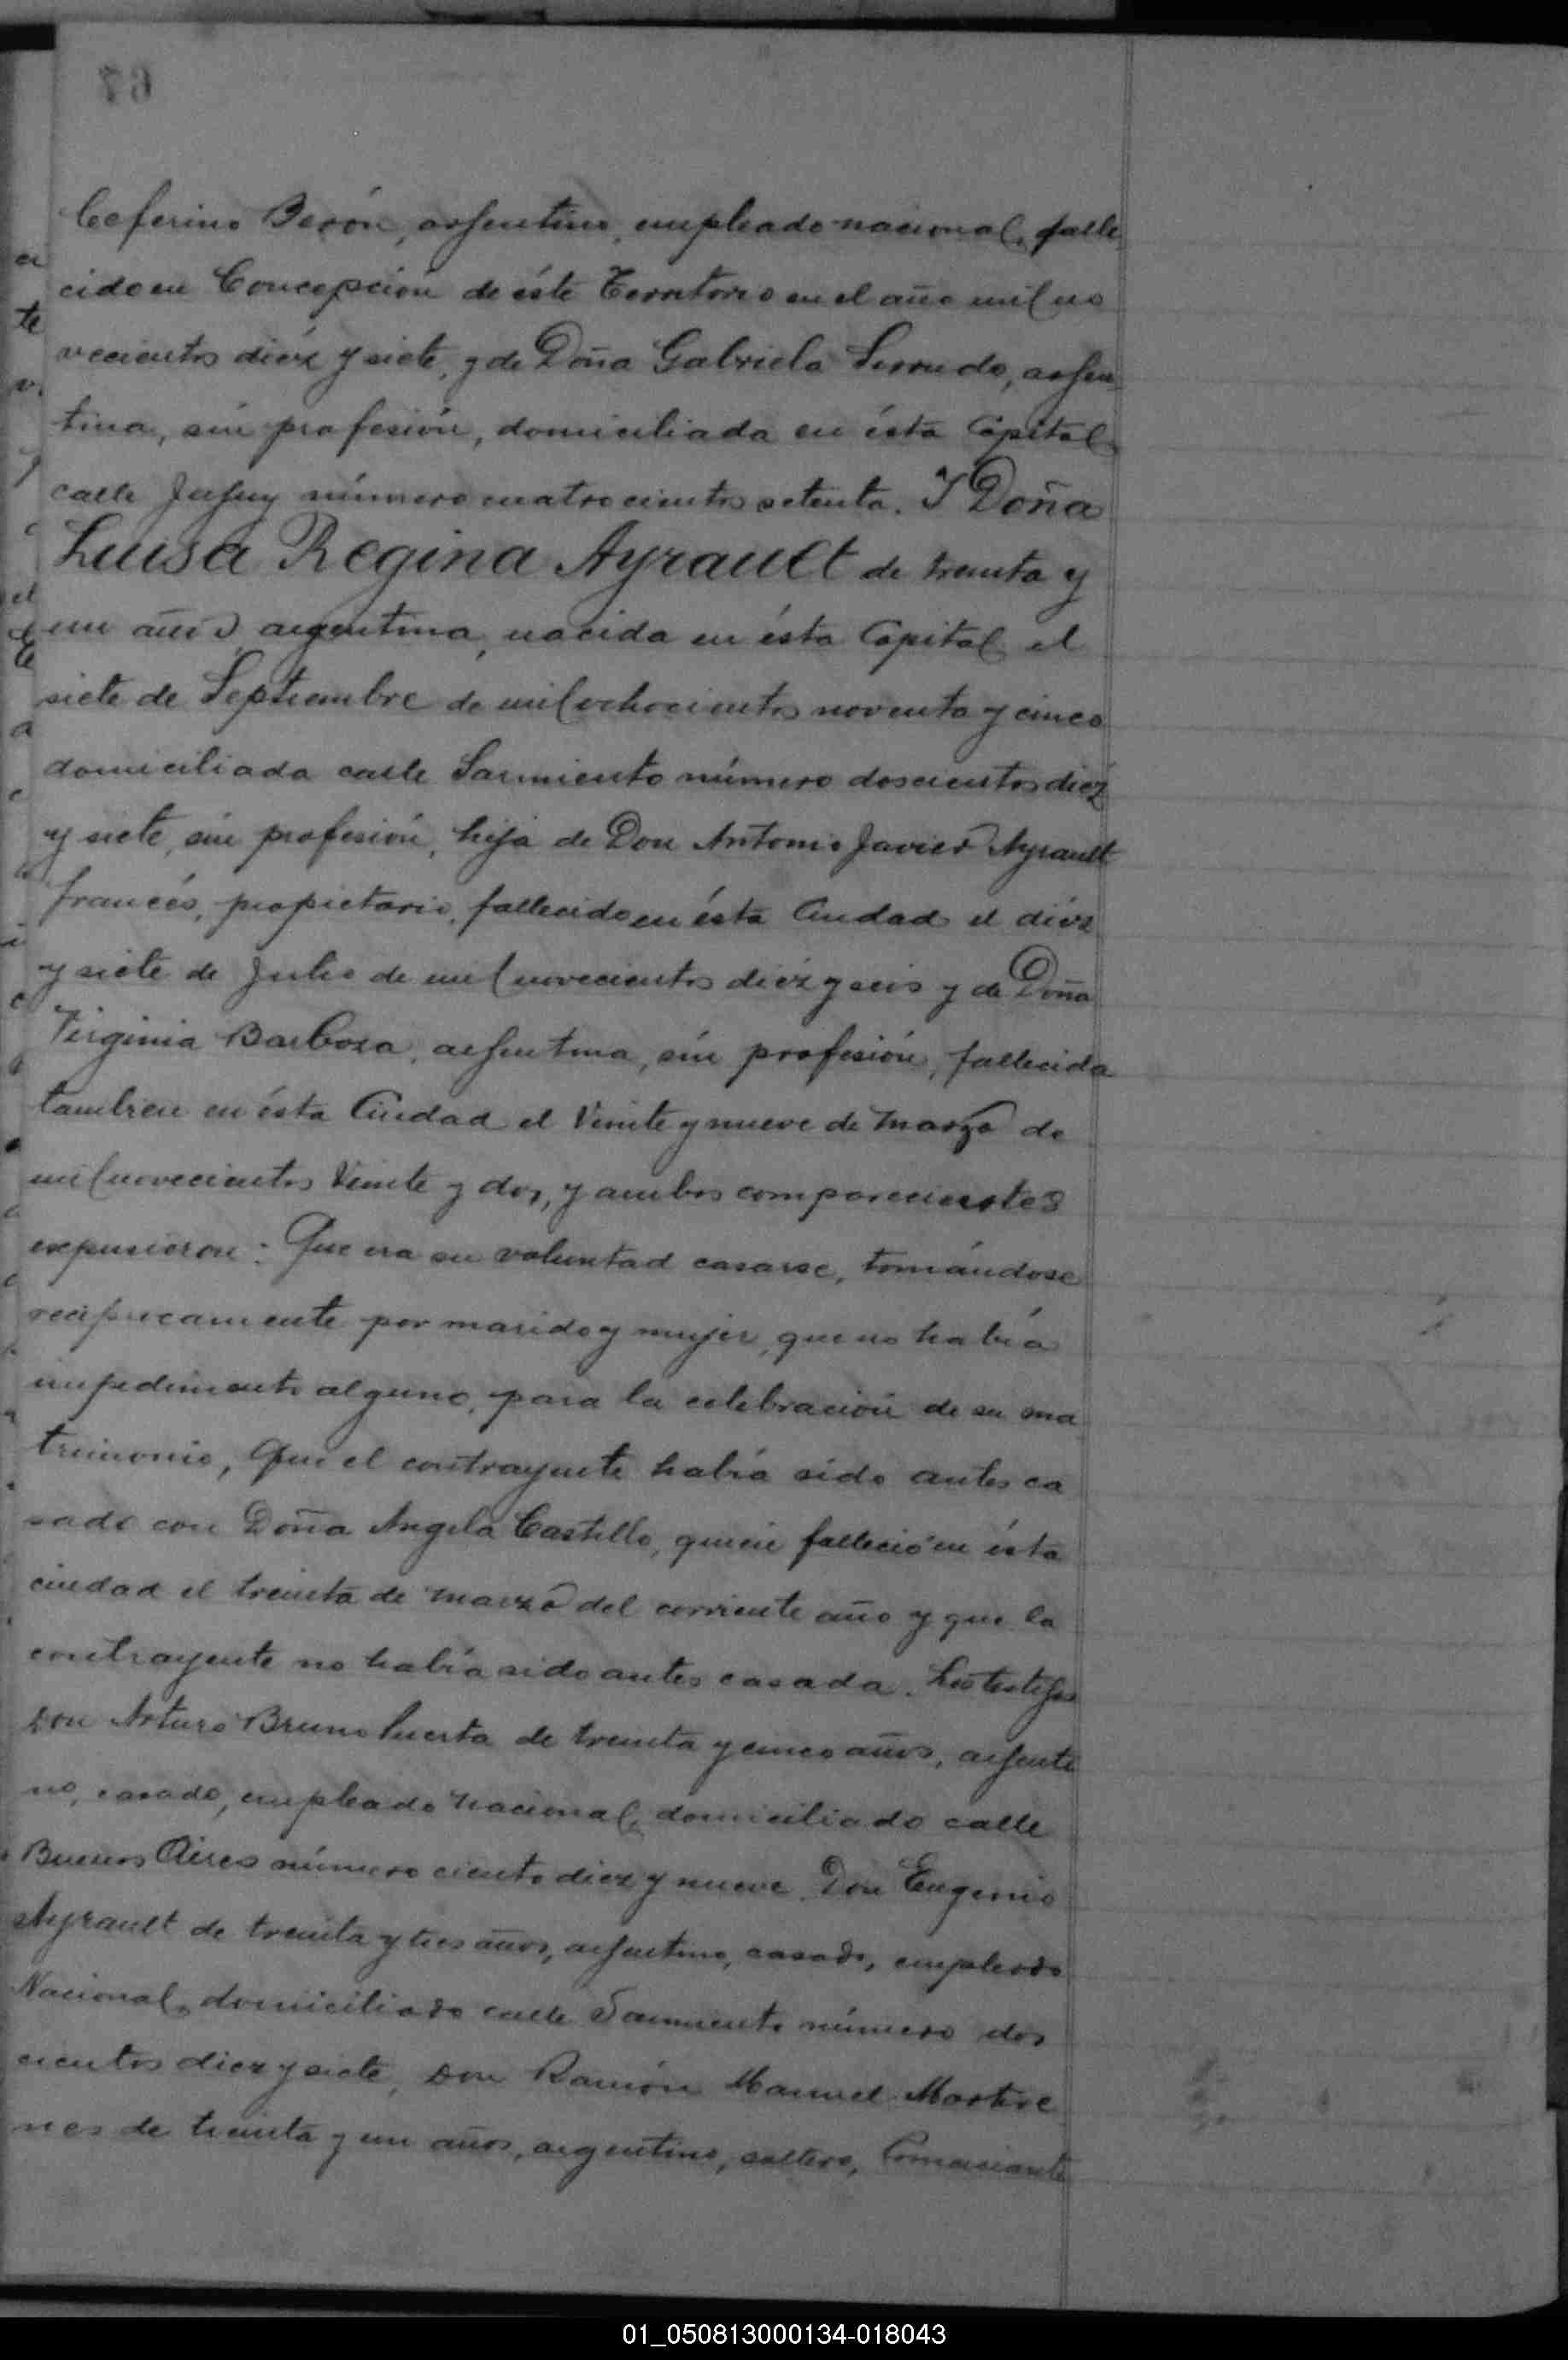 67
Ceferino Berón, argentino, empleado nacional, falle
cido en Concepción de éste Territorio en el año mil no
vecientos diéz y siete, y de Doña Gabriela Serrudo, argen
tina, sin profesión, domiciliada en ésta Capital
calle Jujuy número cuatrocientos setenta. Y Doña
Luisa Regina Ayrault de treinta y
un años argentina, nacida en ésta Capital el
siete de Septiembre de mil ochocientos noventa y cinco
domiciliada calle Sarmiento número doscientos diez
y siete, sin profesión, hija de Don Antonio Javier Ayrault
francés, propietario, fallecido en ésta Ciudad el diéz
y siete de Julio de mil novecientos diéz y seis y de Doña
Virginia Barboza, argentina, sin profesión, fallecida
tambien en ésta Ciudad el Veinte y nueve de Marzo de
mil novecientos Veinte y dos, y ambos comparecientes
expusieron: Que era su voluntad casarse, tomándose
reciprocamente por marido y mujer, que no había
impedimento alguno, para la celebración de su ma
trimonio, Que el contrayente había sido antes ca
sado con Doña Angela Castillo, quien falleció en ésta
ciudad el treinta de Marzo del corriente año y que la
contrayente no había sido antes casada. Los testigos
Don Arturo Bruno Puerta de treinta y cinco años, argenti
no, casado, empleado nacional, domiciliado calle
Buenos Aires número ciento diez y nueve. Don Eugenio
Ayrault de treinta y tres años, argentino, casado, empleado
Nacional, domiciliado calle Sarmiento número dos
cientos diez y siete, Don Ramón Manuel Martire
nes de treinta y un años, argentino, soltero, Comerciante
01_050813000134-018043